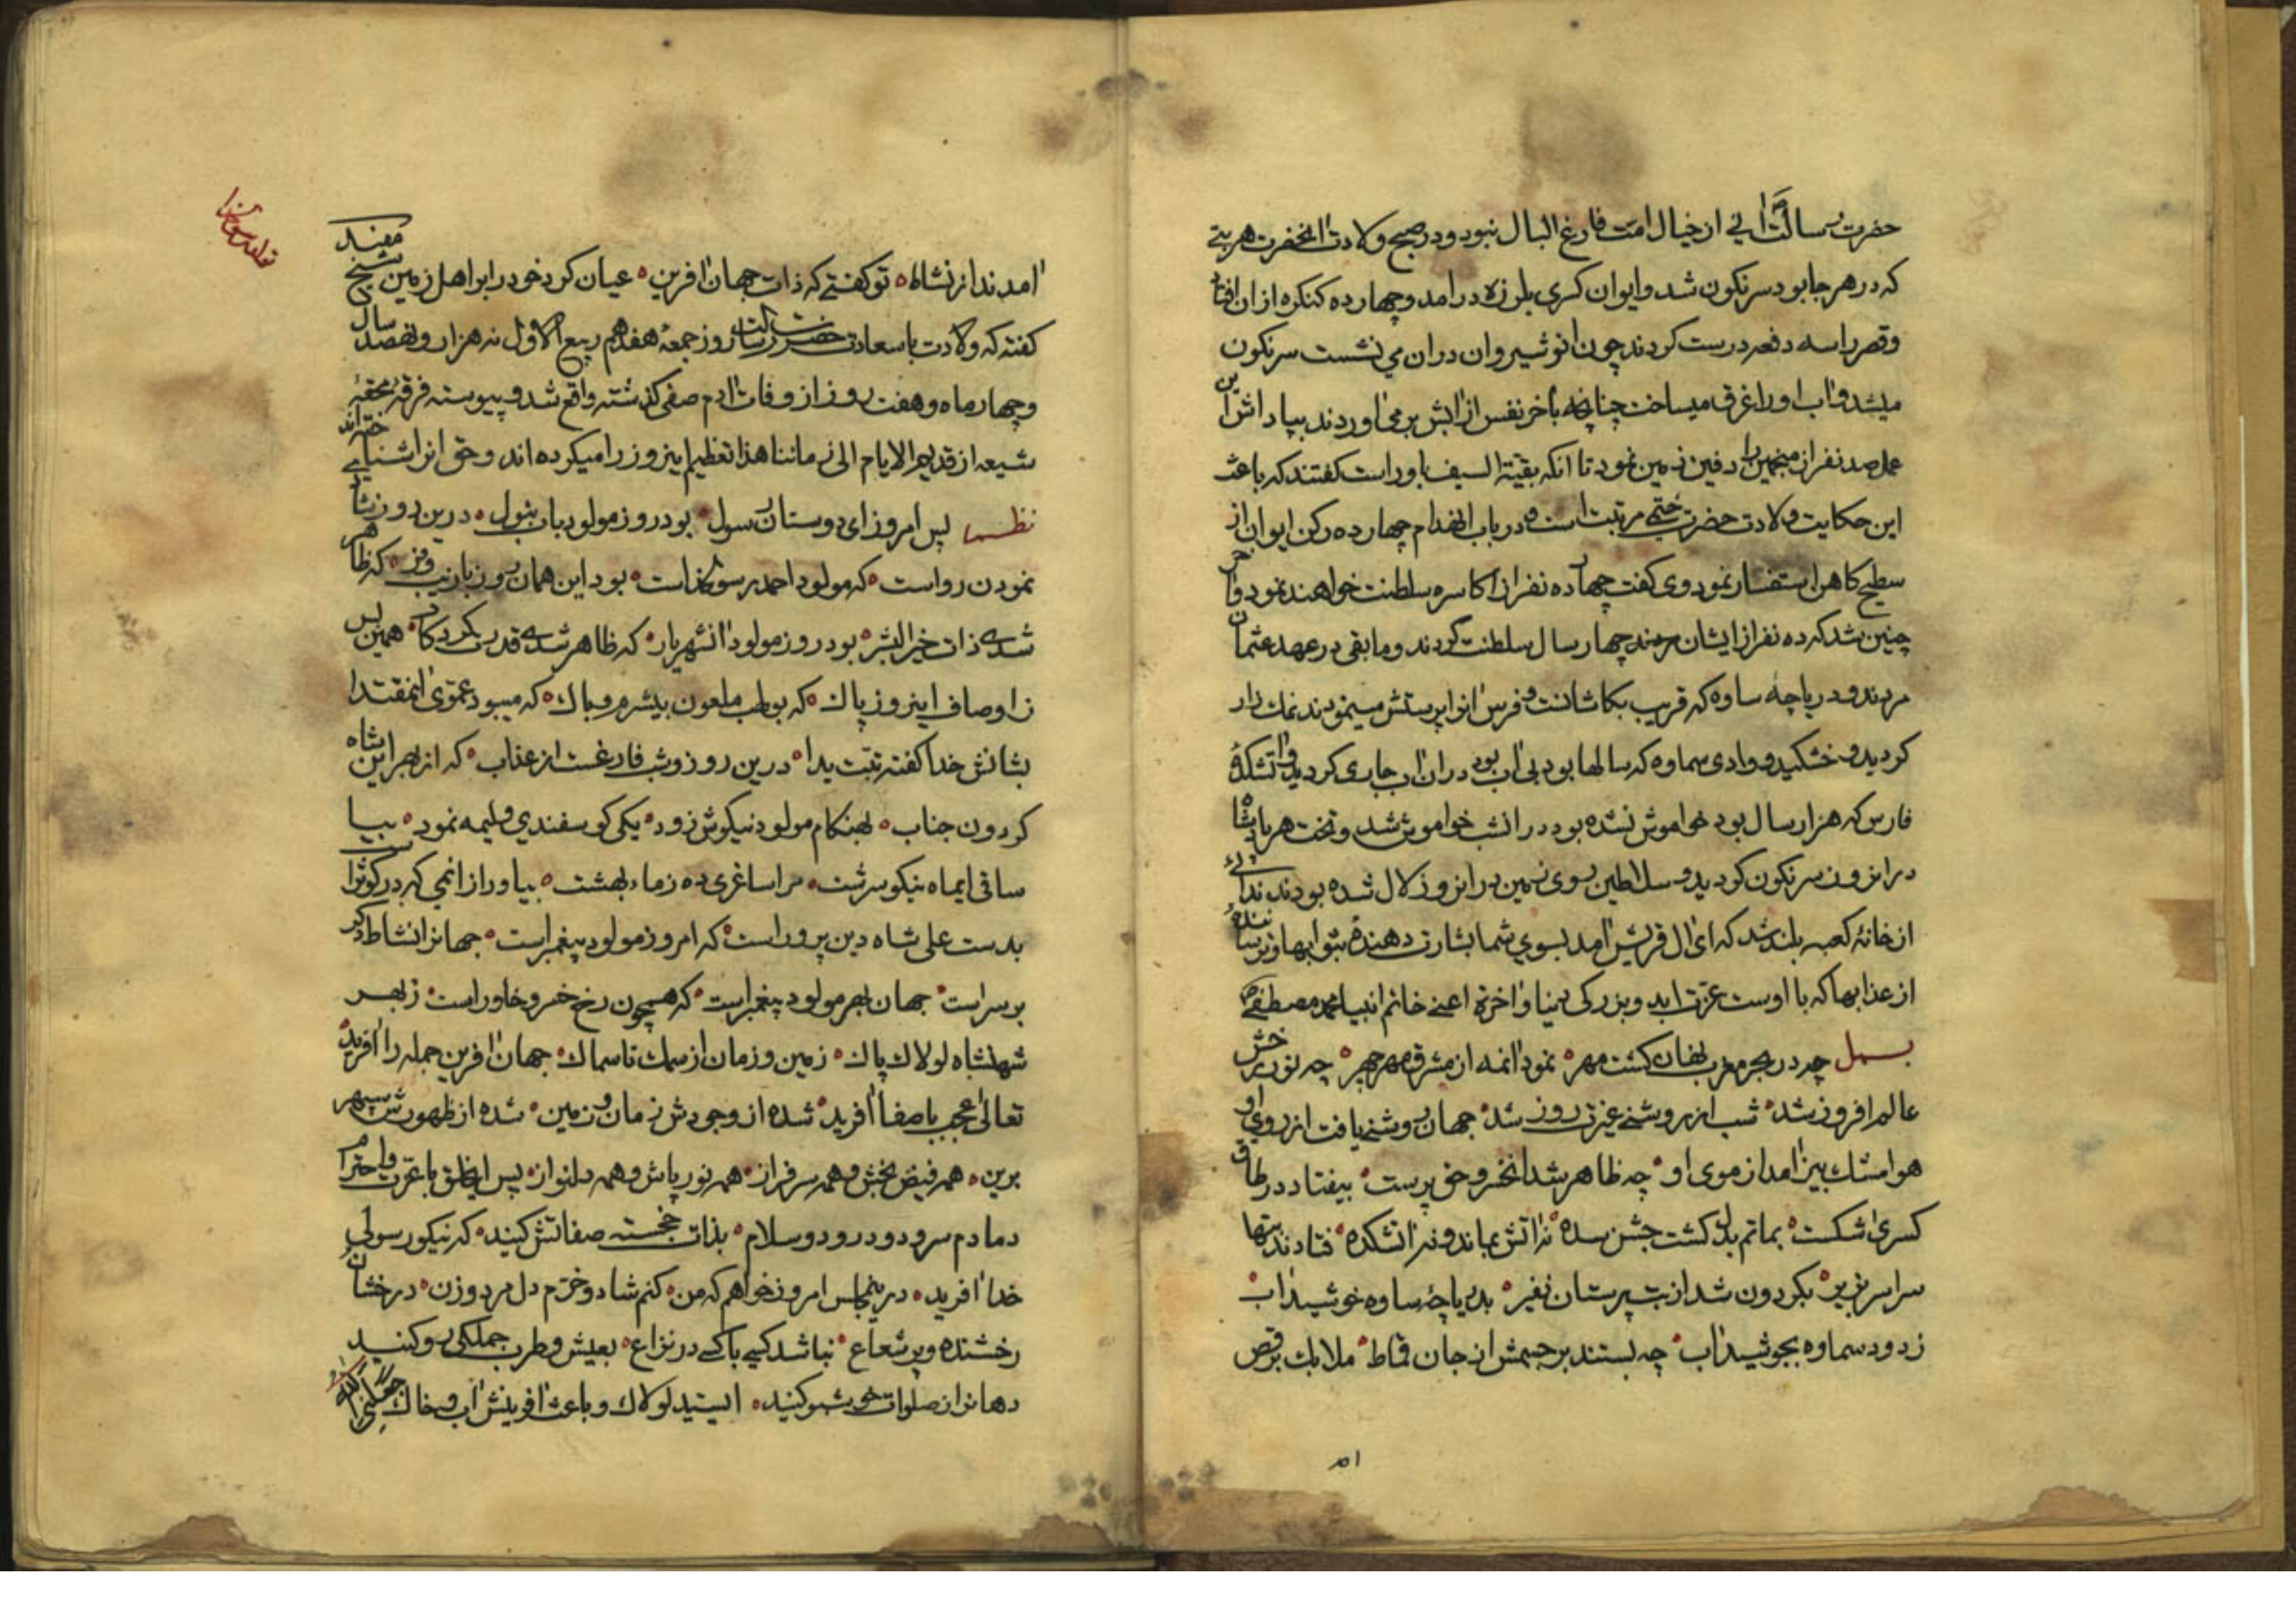 حضرت رسالت آنی از خیال امت فارغ البال نبود و در صبح ولادت آنحضرت هر بتی
که در هر جا بود سرنکون شد و ایوان کسری بلرزه درامد و چهارده کنکره از ان افتاد
و قصر را سه دفعه درست کردند چون انوشیروان دران می نشست سرنکون
میشد و آب او را غرق میساخت چنانچه بآخر نفس از آبش بر می آوردند بپاداش این
عمل صد نفر از منجمین را دفین زمین نمود تا آنکه بقیة السیف باو راست کفتند که باعث
این حکایت ولادت حضرت ختمی مرتبت است و در باب انهدام چهارده رکن ایوان از
سطیح کاهن استفسار نمود وی کفت چهارده نفر از اکاسره سلطنت خواهند نمود و آخر
چنین شد که ده نفر از ایشان چهار سال سلطنت کردند و مابقی در عهد عثمان
مردند و دریاچه ساوه که قریب بکاشانست و فرس آنرا پرستش مینمودند نمک زار
کردید و خشکید و وادی سماوه که سالها بود بی آب بود دران آب جاری کردید و آتشکدۀ
فارس که هزار سال بود خواموش نشده بود در آنشب خواموش شد و تخت هر پادشاه
در انروز سرنکون کردید و سلاطین روی زمین در انروز لال شده بودند ندائی
از خانۀ کعبه بلند شد که ای آل قریش آمد بسوی شما بشارت دهندۀ بثوابها و ترسانندۀ
از عذابها که با اوست عزت ابد و بزرکی دنیا و آخرة اعنی خاتم انبیا محمد مصطفی ص
بسمل چه در بحر مغرب نهان کشت مهر نمود آنمه از مشرق مهر چهر چه نور رخش
عالم افروز شد شب از روشنی غیرت روز شد جهان روشنی یافت از روی او
هوا مشک بیز آمد از موی او چه ظاهر شد آنخسرو حق پرست بیفتاد در طاق
کسری شکست بماتم بدل کشت جشن سده نه آتش بماند و نه آتشکده فتادند بتها
سراسر بزیر بکردون شد از بت پرستان نفیر بدریاچۀ ساوه خوشید آب
ز رود سماوه بجوشید آب چه بستند بر جسمش از جان قماط ملایک برقص
آمدند از نشاط تو کفتی که ذات جهان آفرین عیان کرد خود را بر اهل زمین شیخ مفید
کفته که ولادت باسعادت حضرت رسالت روز جمعه هفدهم ربیع الاول نه هزار و نهصد سال
و چهار ماه و هفت روز از وفات آدم صفی کذشته واقع شد و پیوسته فرقۀ محقۀ
شیعه از قدیم الایام الی زماننا هذا تعظیم اینروز را میکرده اند و حق انرا شناخته اند
نظم پس امروز ای دوستان رسول بود روز مولود باب بتول درین روز شادی
نمودن رواست که مولود احمد رسول خداست بود این همان روز با زیب و فر که ظاهر
شدی ذات خیر البشر بود روز مولود آنشهریار که ظاهر شدی قدرت کردکار همین بس
ز اوصاف اینروز پاک که بولهب ملعون بیشرم و باک که میبود عموی آنمقتدا
بشانش خدا کفته تبت یدا درین روز و شب فارغست از عذاب که از بهر این شاه
کردون جناب بهنکام مولود نیکوش زود یکی کوسفندی ولیمه نمود بیا
ساقی ایماه نیکو سرشت مرا ساغری ده ز ماء بهشت بیاور از آنمی که در کوثر است
بدست علی شاه دین پرور است که امروز مولود پیغمبر است جهانرا نشاط دکر
بر سر است جهان بهر مولود پیغمبر است که همچون رخ خسرو خاور است ز بهر
شهنشاه لولاک پاک زمین و زمان از سمک تا سماک جهان آفرین جمله را آفرید
تعالی عجب باصفا آفرید شده از وجودش زمان و زمین شده از ظهورش سپهر
برین همه فیض بخش و همه سرفراز همه نور پاش و همه دلنواز پس ایخلق با عزت و احترام
دمادم سرود و درود و سلام بذات خجسته صفاتش کنید که نیکو رسولی
خدا آفرید درینمجلس امروز خواهم که من کنم شاد و خرم دل مرد و زن درخشان
رخشنده و پر شعاع نباشد کسی با کسی در نزاع بعیش و طرب جملکی رو کنید
دهانرا ز صلوات خوشبو کنید السید لولاک و باعث آفرینش آب و خاک